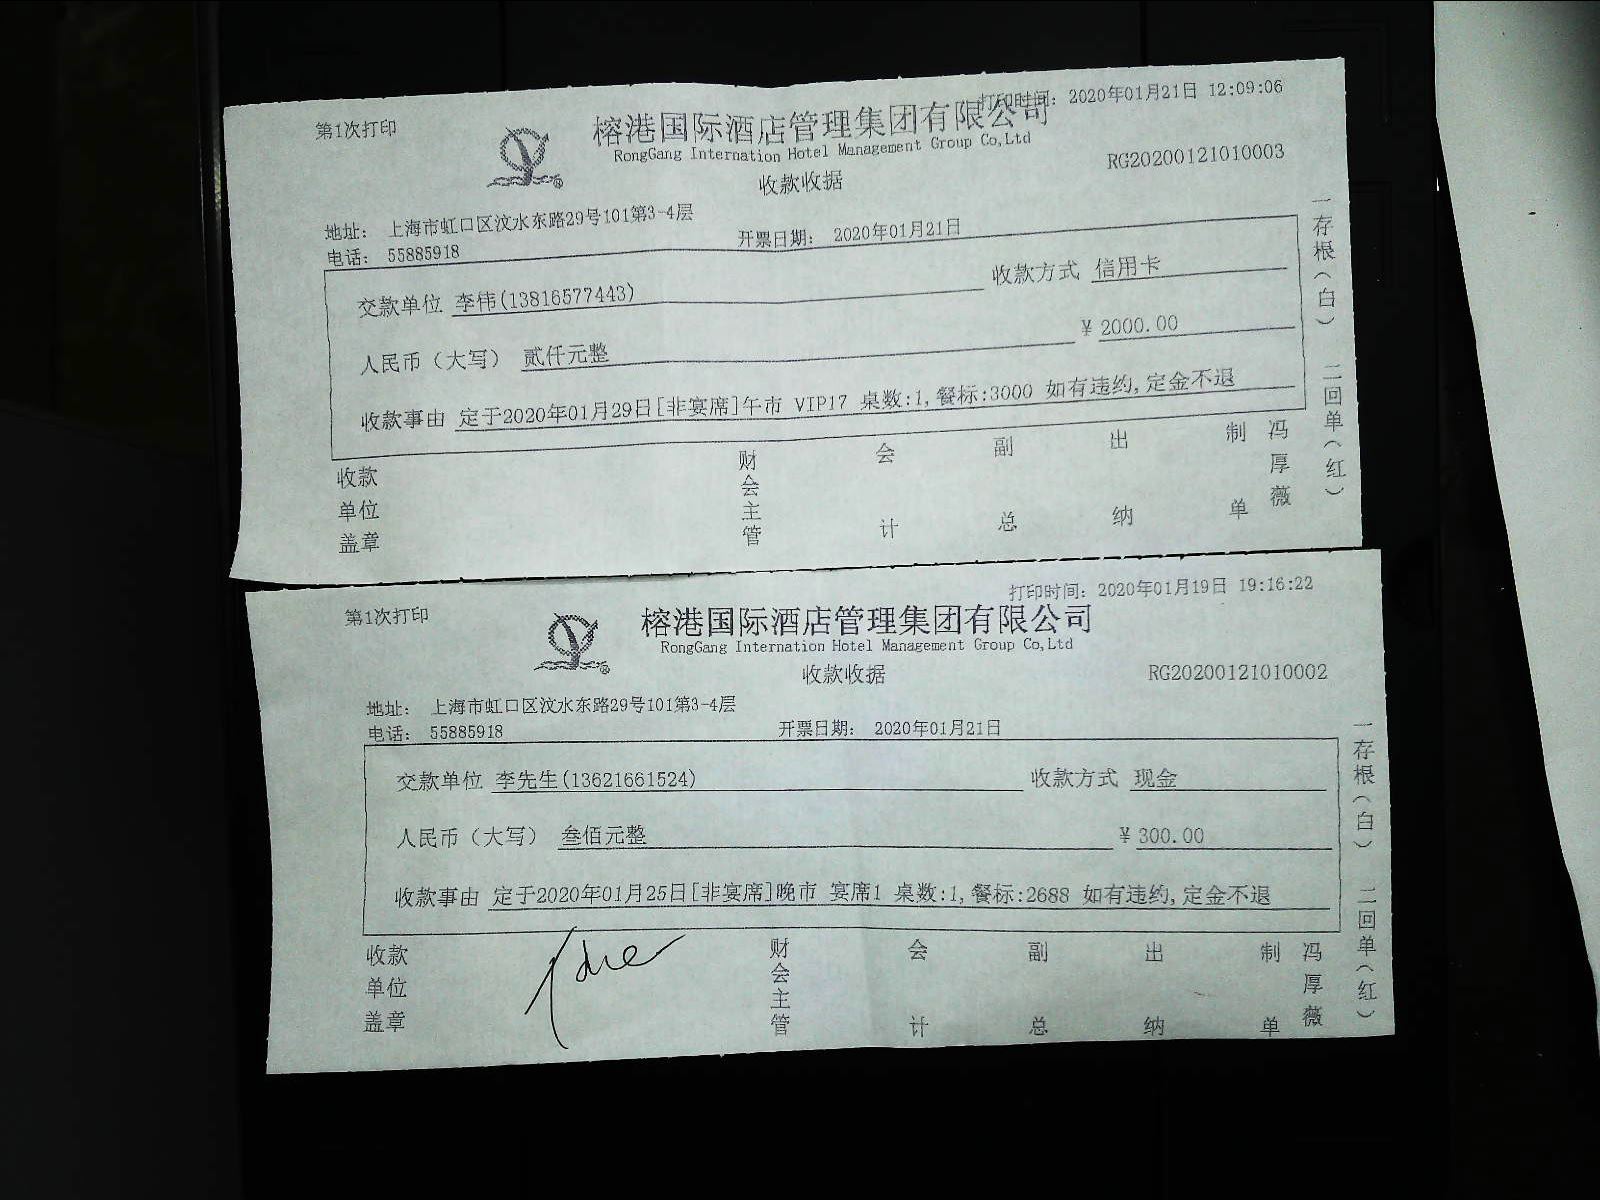 第1次打印
打印时间: 2020年01月21日 12:09:06
榕港国际酒店管理集团有限公司
RongGang Internation Hotel Management Group Co,Ltd
收款收据
RG20200121010003
地址: 上海市虹口区汶水东路29号101第3-4层
电话: 55885918
开票日期: 2020年01月21日
交款单位 李祎(13816577443)
收款方式 信用卡
人民币（大写） 贰仟元整
¥ 2000.00
收款事由 定于2020年01月29日[非宴席]午市 VIP17 桌数:1,餐标:3000 如有违约,定金不退
收款单位盖章
财会主管
会计
副总
出纳
制单
冯厚薇
一存根(白) 二回单(红)
第1次打印
打印时间: 2020年01月19日 19:16:22
榕港国际酒店管理集团有限公司
RongGang Internation Hotel Management Group Co,Ltd
收款收据
RG20200121010002
地址: 上海市虹口区汶水东路29号101第3-4层
电话: 55885918
开票日期: 2020年01月21日
交款单位 李先生(13621661524)
收款方式 现金
人民币（大写） 叁佰元整
¥ 300.00
收款事由 定于2020年01月25日[非宴席]晚市 宴席1 桌数:1,餐标:2688 如有违约,定金不退
收款单位盖章
财会主管
会计
副总
出纳
制单
冯厚薇
一存根(白) 二回单(红)